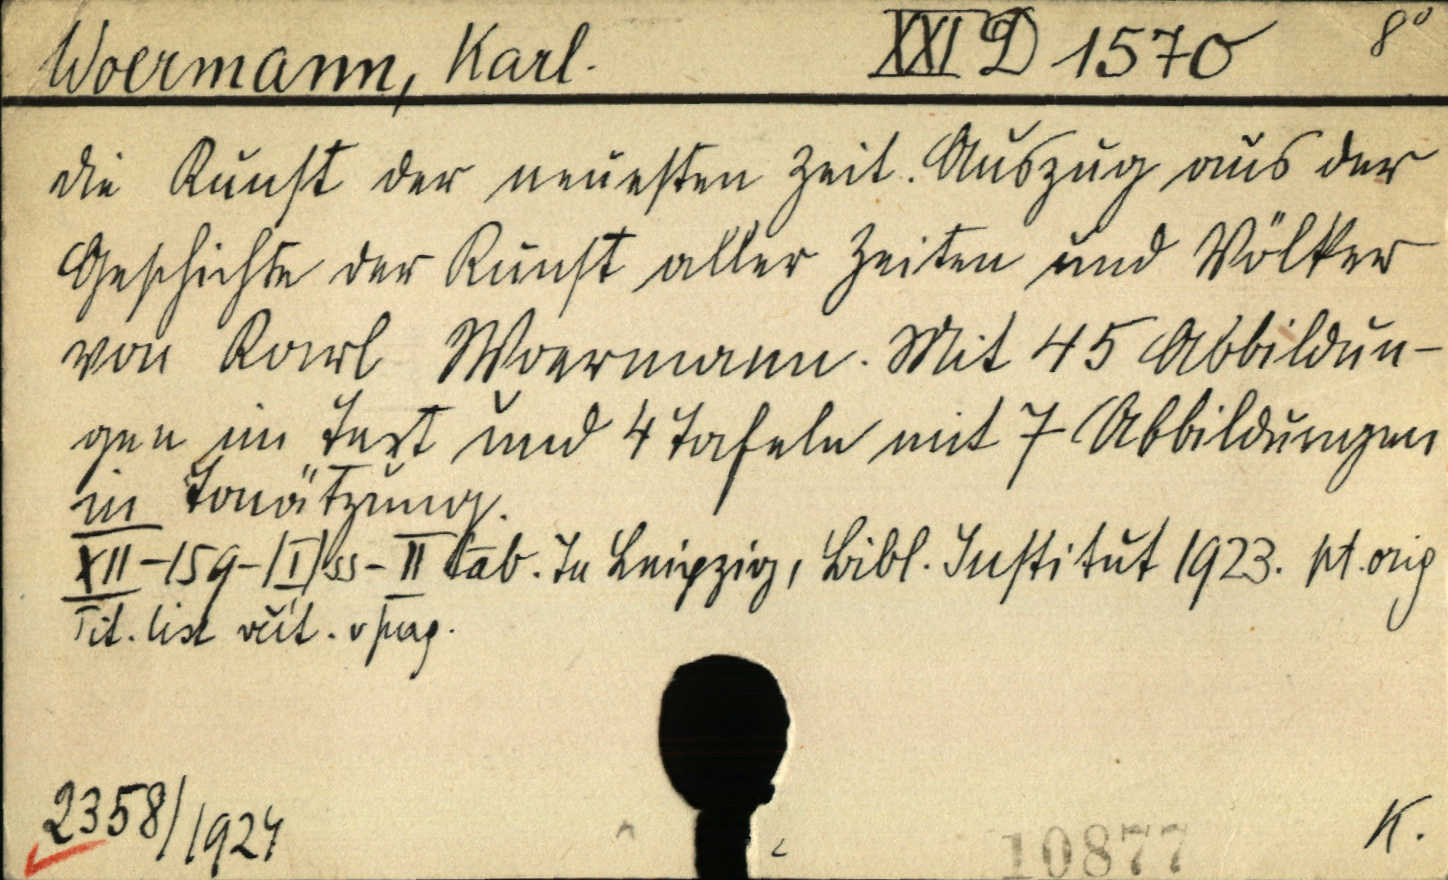 Woermann, Karl. XXI D 1570 8°
Die Kunst der neuesten Zeit. Auszug aus der
Geschichte der Kunst aller Zeiten und Völker
von Karl Woermann. Mit 45 Abbildun-
gen im Text und 4 Tafeln mit 7 Abbildungen
in Tonätzung.
XII-159-[I] ss-II tab. In Leipzig, Bibl. Institut 1923. pt. orig
Tit. list
2358/1924 10877 K.